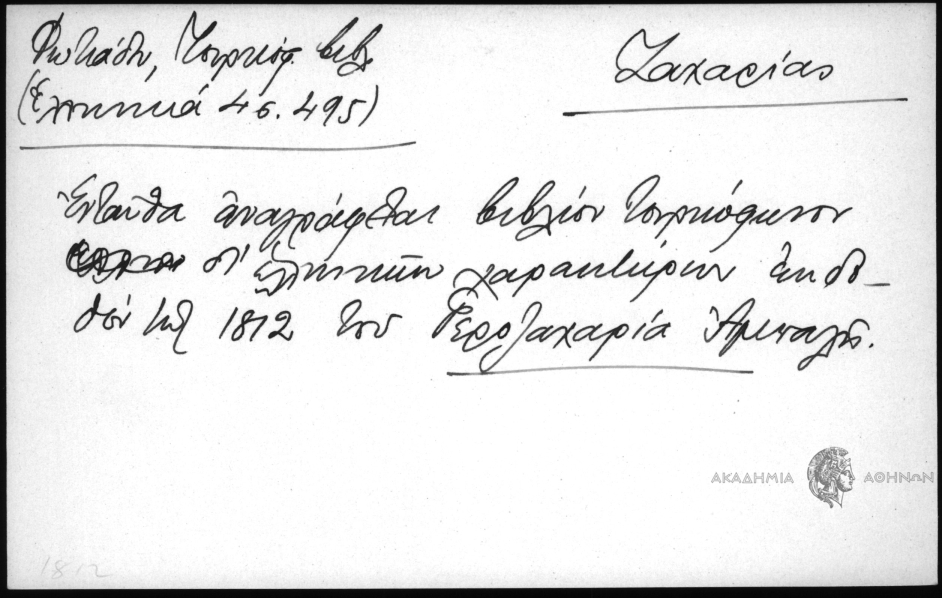 Φωτιάδη, Τουρκόφ. βιβλ.
(Ελληνικά 4 σ. 495)
Ζαχαρίας
Ἐνταῦθα ἀναγράφεται βιβλίον τουρκόφωνον
δι' ἑλληνικῶν χαρακτήρων ἐκδο-
θὲν τῷ 1812 του Γεροζαχαρία
ΑΚΑΔΗΜΙΑ ΑΘΗΝΩΝ
1812